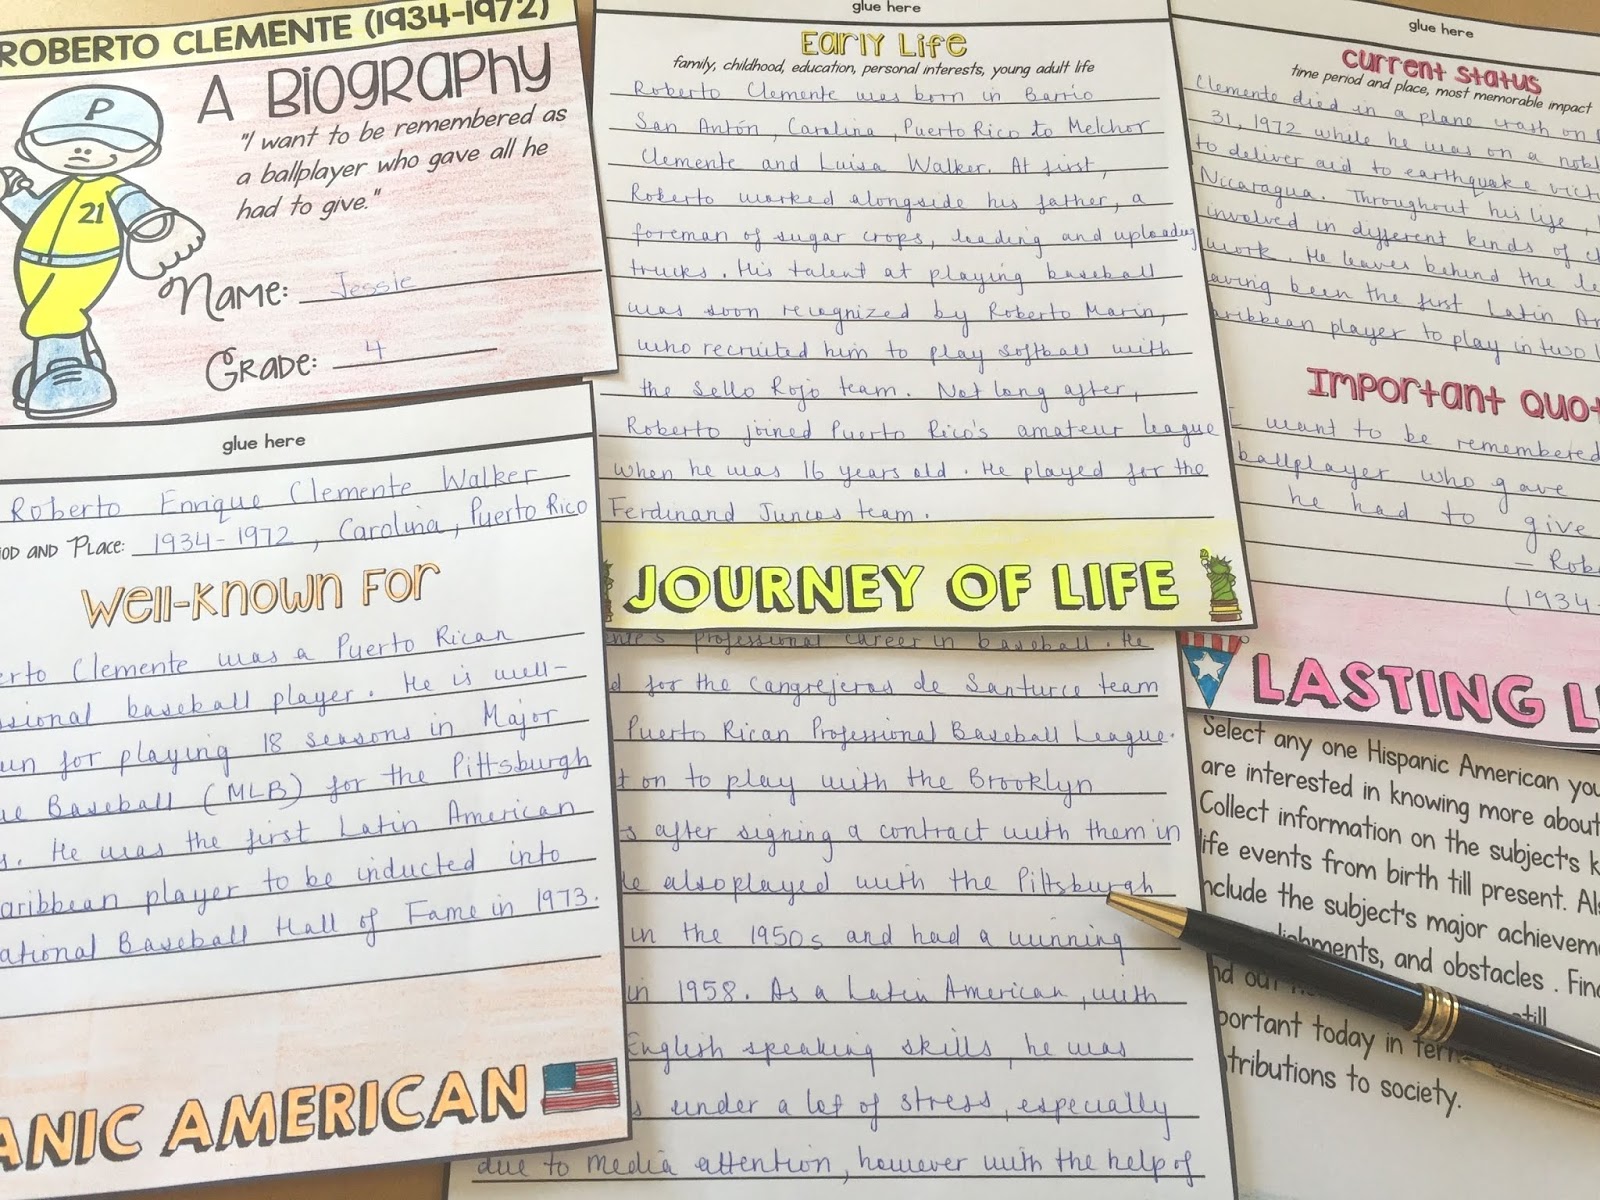 ROBERTO CLEMENTE (1934-1972)
A Biography
"I want to be remembered as
a ballplayer who gave all he
had to give."
P
21
Name: Jessie
Grade: 4
glue here
Roberto Enrique Clemente Walker
and Place: 1934-1972, Carolina, Puerto Rico
Well-Known For
Clemente was a Puerto Rican
baseball player. He is well-
for playing 18 seasons in Major
Baseball (MLB) for the Pittsburgh
He was the first Latin American
player to be inducted into
Baseball Hall of Fame in 1973.
AMERICAN
glue here
Early Life
family, childhood, education, personal interests, young adult life
Roberto Clemente was born in Barrio
San Antón, Carolina, Puerto Rico to Melchor
Clemente and Luisa Walker. At first,
Roberto worked alongside his father, a
foreman of sugar crops, loading and uploading
trucks. His talent at playing baseball
was soon recognized by Roberto Marin,
who recruited him to play softball with
the Sello Rojo team. Not long after,
Roberto joined Puerto Rico's amateur league
when he was 16 years old. He played for the
Ferdinand Juncos team.
JOURNEY OF LIFE
professional career in baseball. He
for the Cangrejeros de Santurce team
Puerto Rican Professional Baseball League.
on to play with the Brooklyn
after signing a contract with them in
also played with the Pittsburgh
in the 1950s and had a winning
in 1958. As a Latin American, with
English speaking skills, he was
under a lot of stress, especially
due to media attention, however with the help of
glue here
Current Status
time period and place, most memorable impact
Clemente died in a plane crash on
31, 1972 while he was on a
to deliver aid to earthquake
Nicaragua. Throughout his life,
involved in different kinds of
work. He leaves behind the
been the first Latin
player to play in two
Important
I want to be remembered
ballplayer who gave
he had to give
-
(1934-
LASTING
Select any one Hispanic American you
are interested in knowing more about
Collect information on the subject's
life events from birth till present.
include the subject's major
and obstacles.
still
important today in
to society.